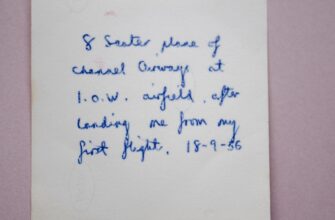 8 Seater plane of
Channel Airways at
I.O.W. airfield, after
landing me from my
first flight. 18-9-56